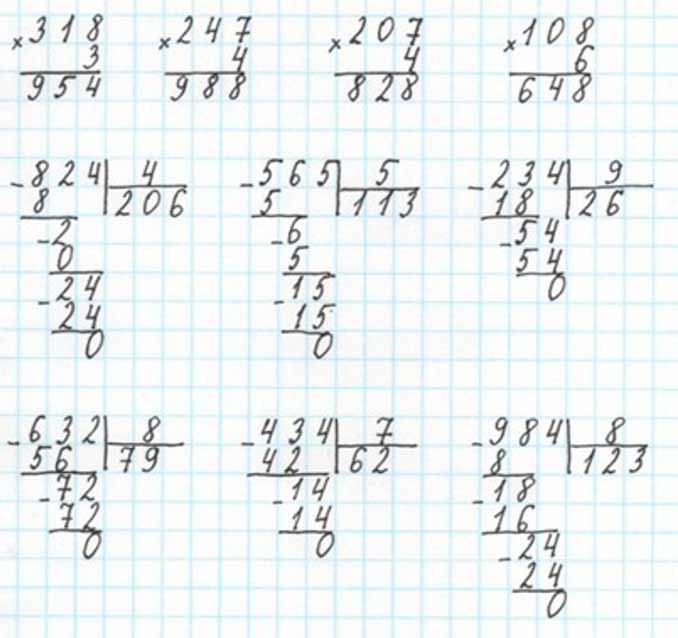 ×318 ×247 ×207 ×108
3 4 4 6
954 988 828 648
-824 4 -565 5 -234 9
8 206 5 113 18 26
-2 -6 -54
0 5 54
-24 -15 0
24 15
0 0
-632 8 -434 7 -984 8
56 79 42 62 8 123
-72 -14 -18
72 14 16
0 0 -24
24
0